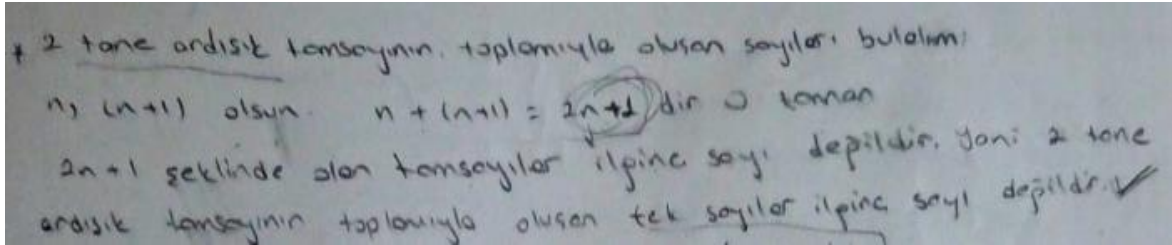 * 2 tane ardışık tamsayının toplamıyla oluşan sayıları bulalım:
n, (n+1) olsun. n + (n+1) = 2n+1 dir o zaman
2n+1 şeklinde olan tamsayılar ilginç sayı değildir. Yani 2 tane
ardışık tamsayının toplamıyla oluşan tek sayılar ilginç sayı değildir.